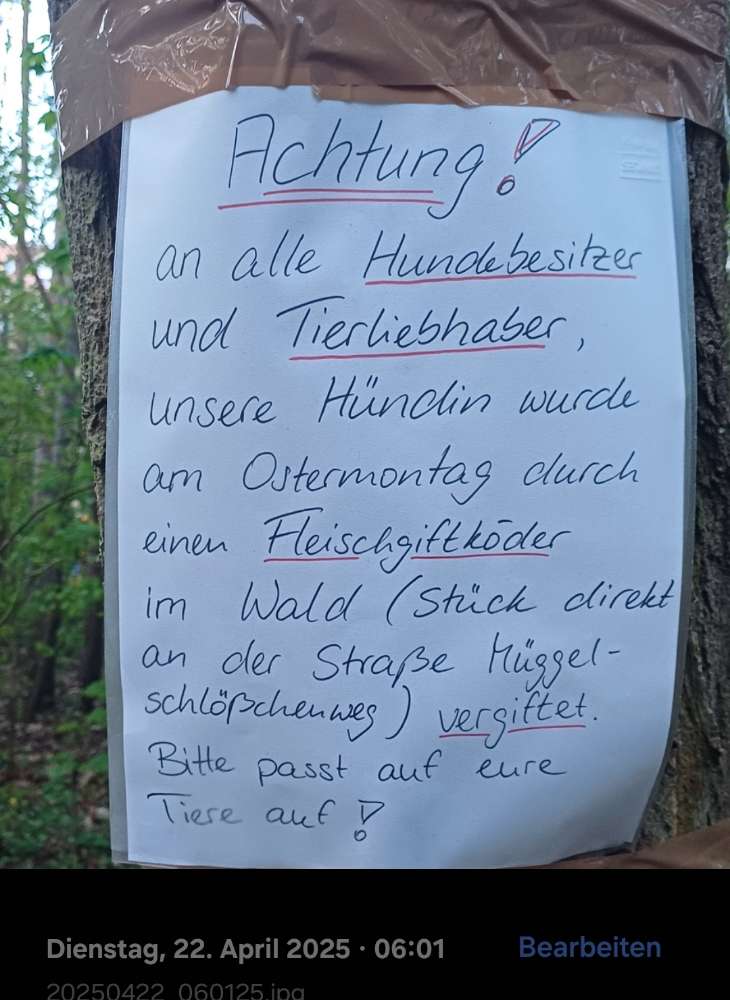 Achtung!
an alle Hundebesitzer
und Tierliebhaber,
unsere Hündin wurde
am Ostermontag durch
einen Fleischgiftköder
im Wald (Stück direkt
an der Straße Müggel-
schlößchenweg) vergiftet.
Bitte passt auf eure
Tiere auf!
Dienstag, 22. April 2025 · 06:01
Bearbeiten
20250422_060125.jpg